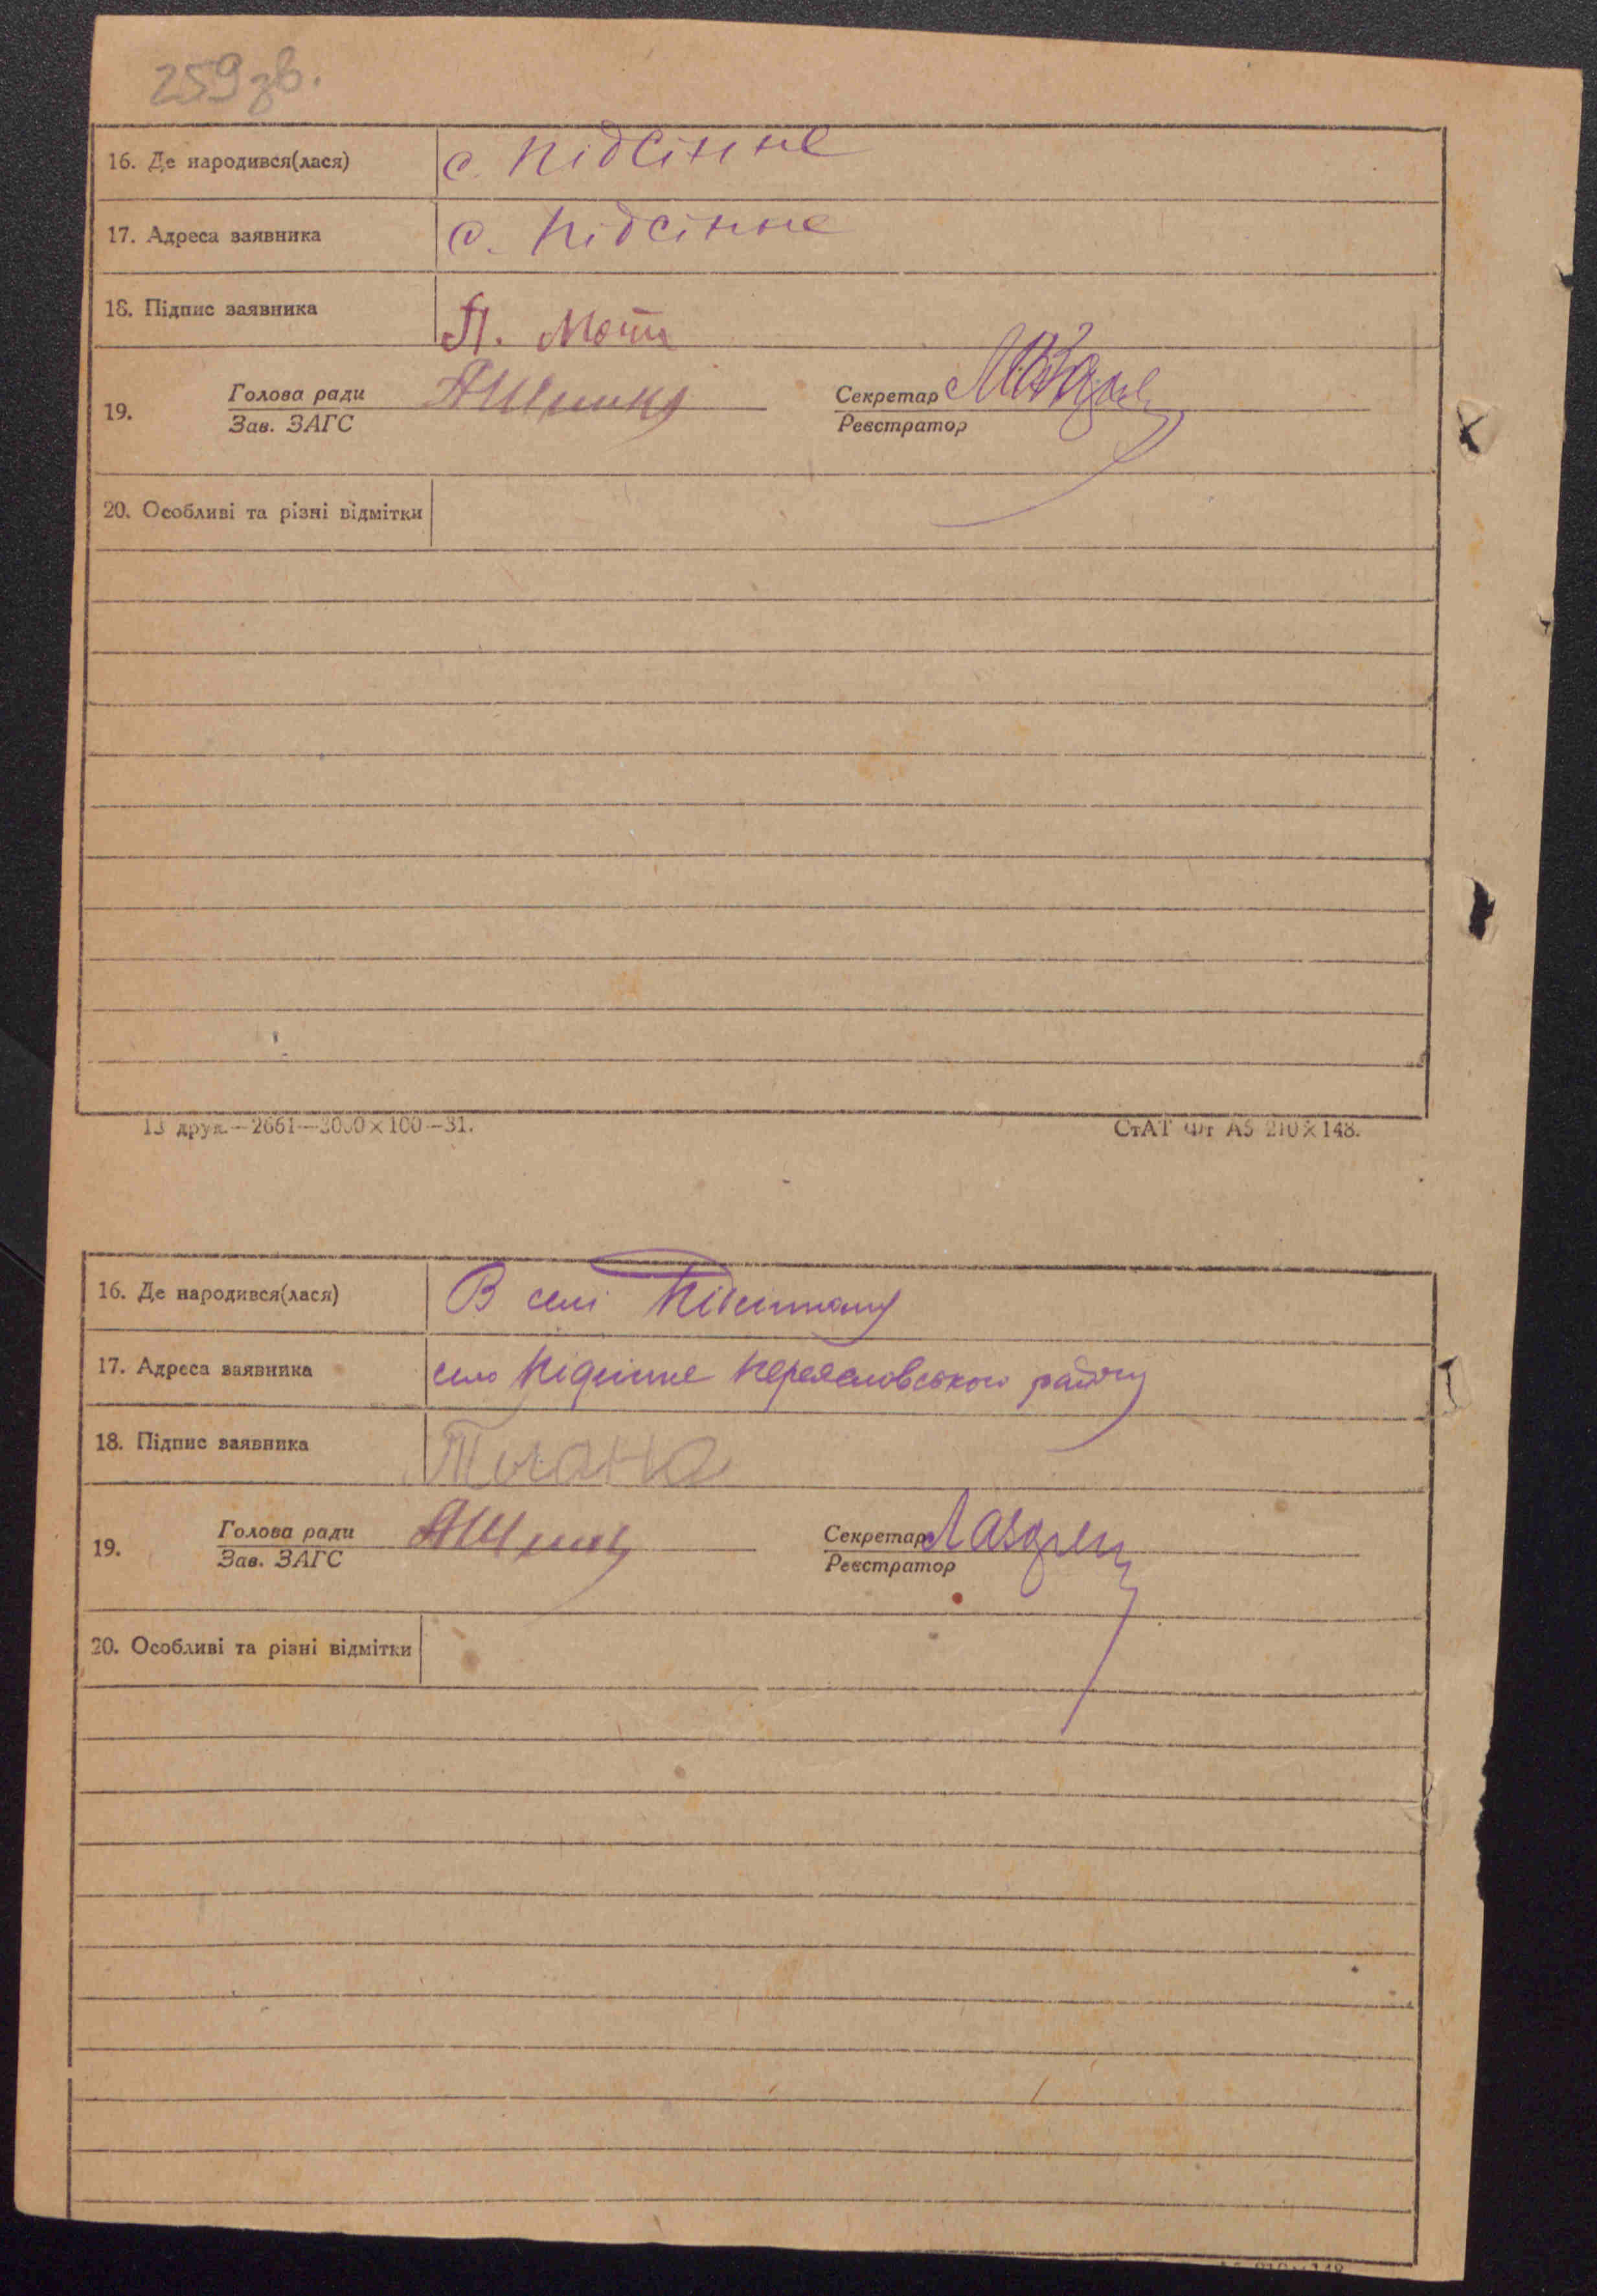 259 зв.
16. Де народився(лася) с. Підсінне
17. Адреса заявника с. Підсінне
18. Підпис заявника П.
19. Голова ради Секретар
Зав. ЗАГС Реєстратор
20. Особливі та різні відмітки
13 друк.—2661—3000×100—31. СтАТ Фт А5 210×148.
16. Де народився(лася) В селі Підсінному
17. Адреса заявника село Підсінне Переяславського району
18. Підпис заявника
19. Голова ради Секретар
Зав. ЗАГС Реєстратор
20. Особливі та різні відмітки